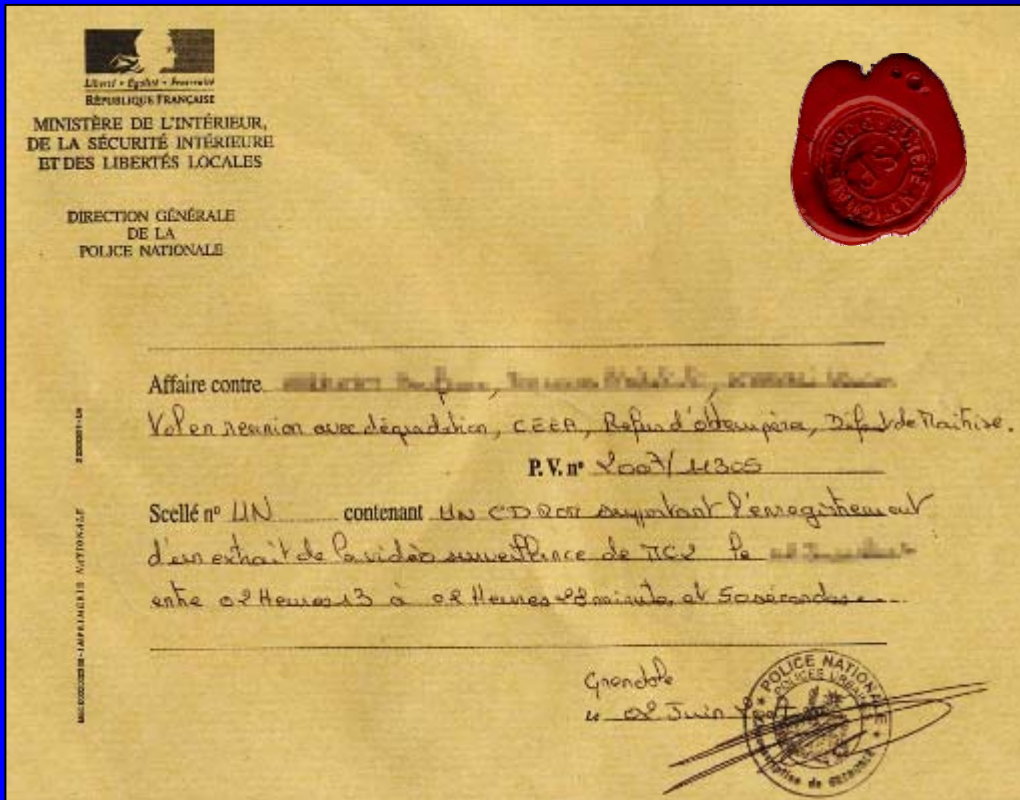 Liberté • Égalité • Fraternité
RÉPUBLIQUE FRANÇAISE
MINISTÈRE DE L'INTÉRIEUR,
DE LA SÉCURITÉ INTÉRIEURE
ET DES LIBERTÉS LOCALES
DIRECTION GÉNÉRALE
DE LA
POLICE NATIONALE
Affaire contre
Vol en reunion avec dégradation, CEEA, Refus d'obtempérer, Défaut de Maitrise.
P.V. nº 2007/11305
Scellé nº UN contenant UN CD ROM supportant l'enregistrement
d'un extrait de la vidéo surveillance de TC2 le
entre 02 Heures 13 à 02 Heures 28 minutes et 50 secondes
IMPRIMERIE NATIONALE
Grenoble
le 02 Juin
POLICE NATIONALE
POLICES URBAINES
Circonscription de GRENOBLE